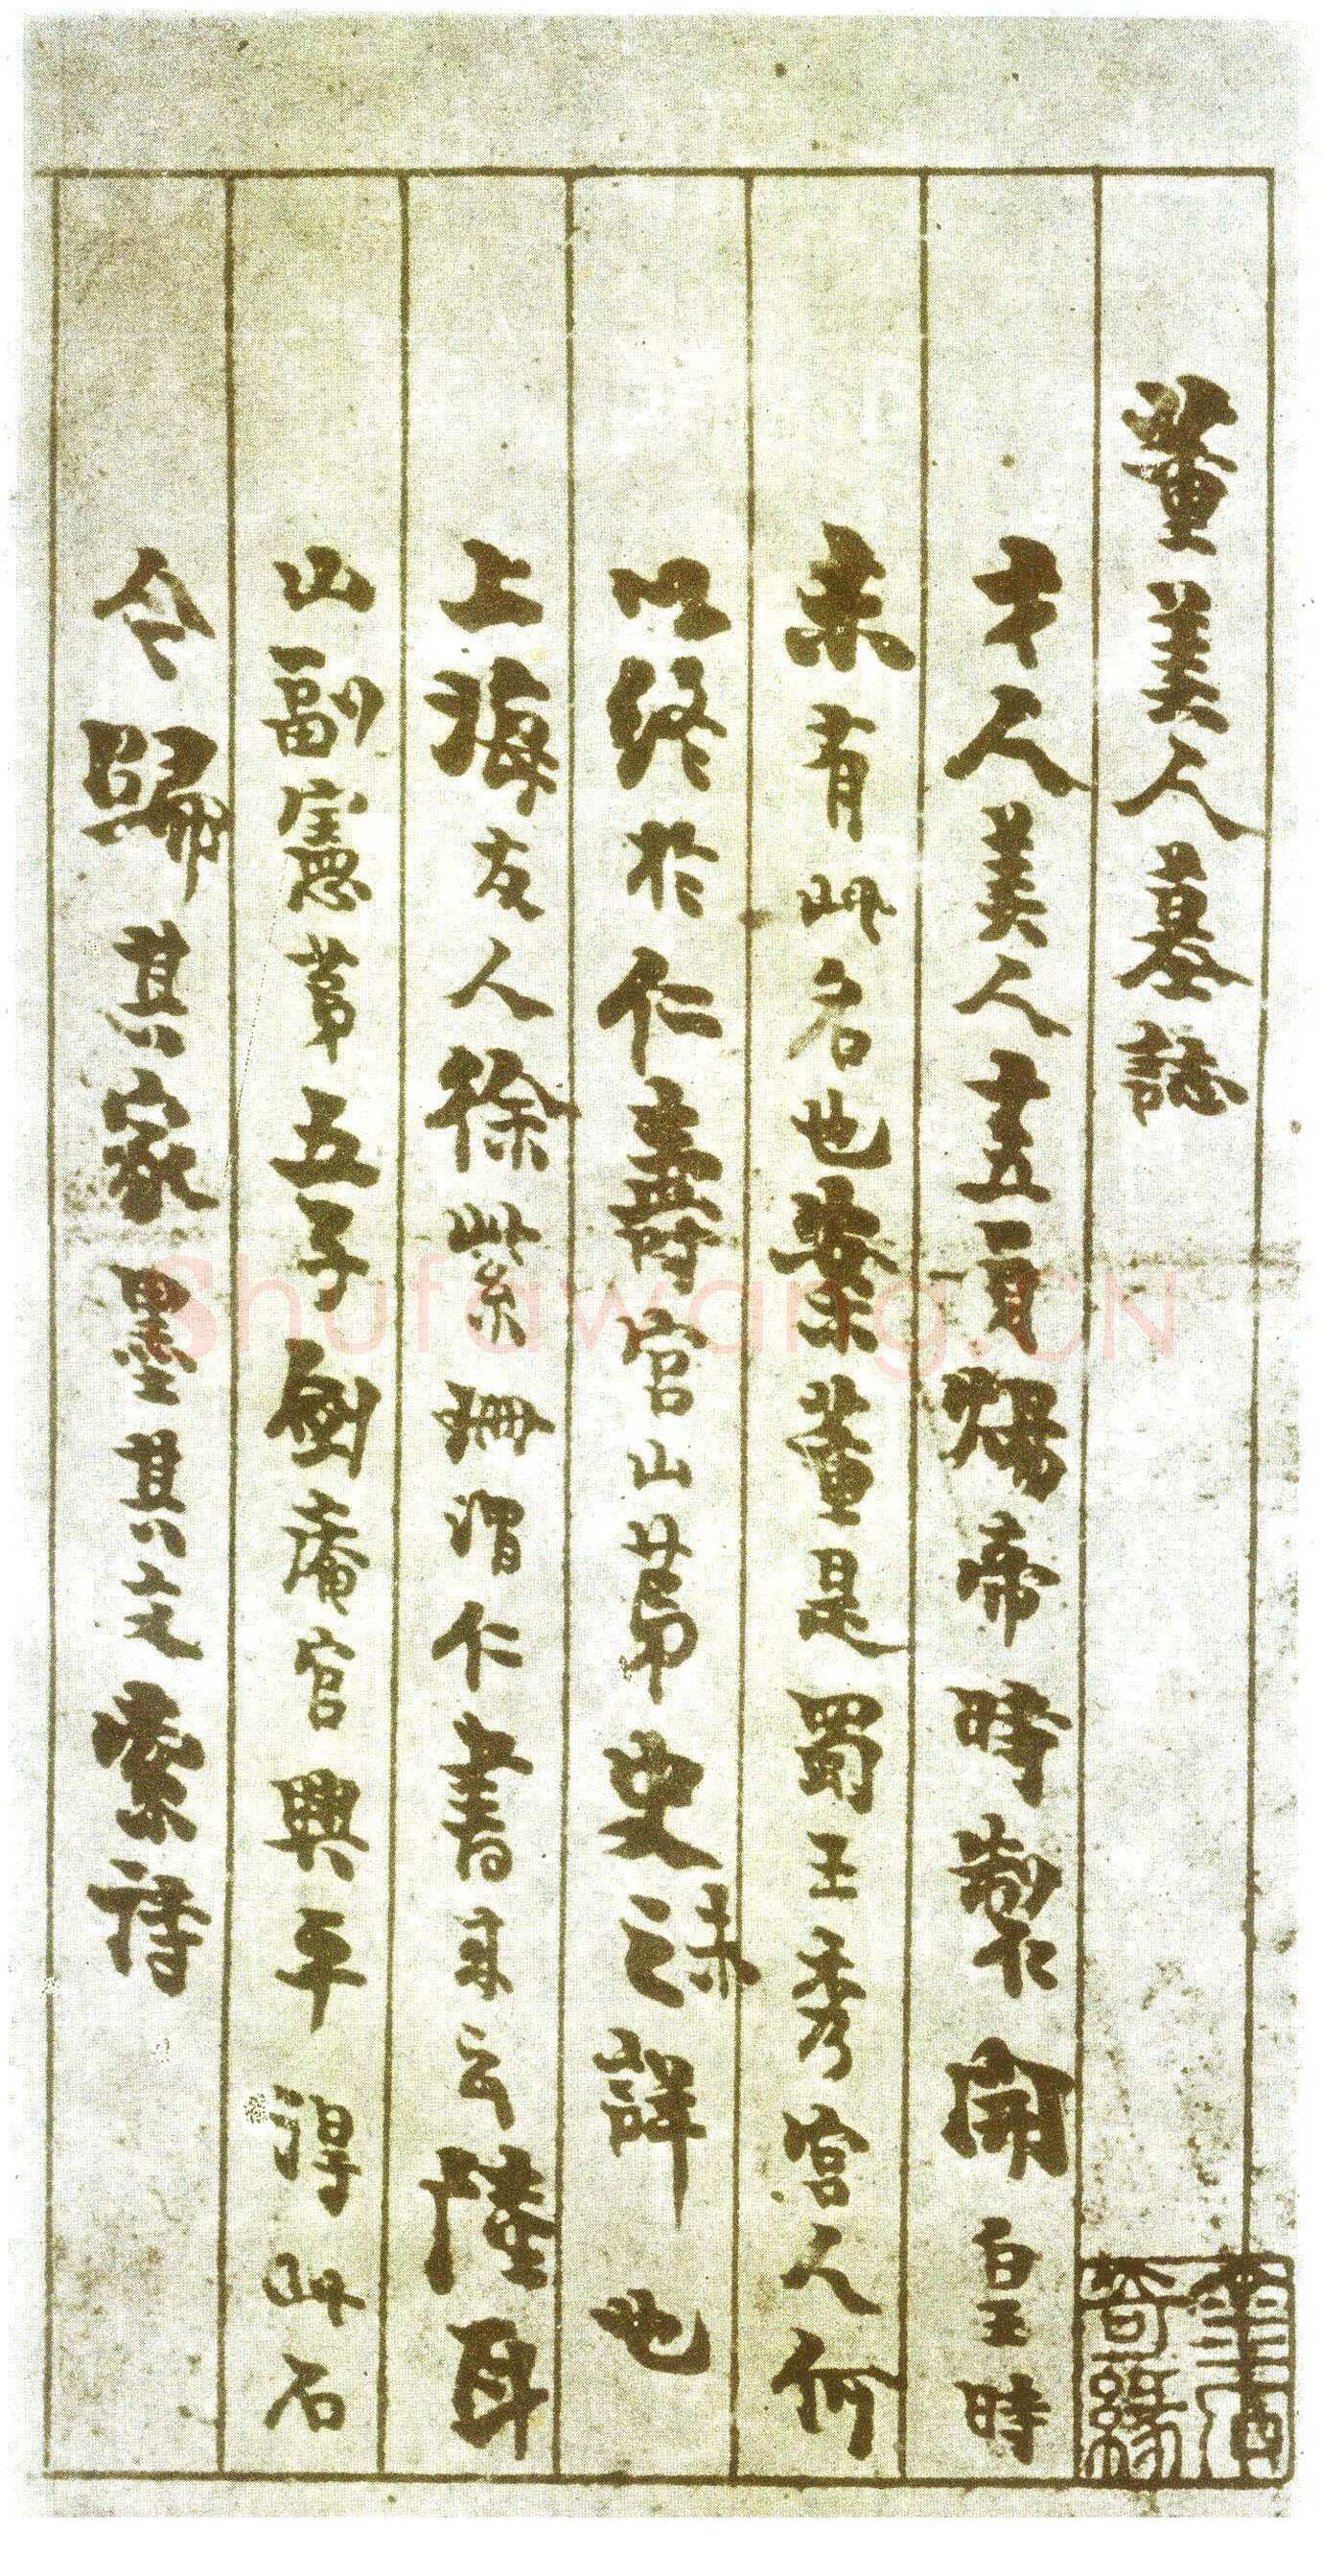 董美人墓誌
才人美人晝夏煬帝時製開皇時
未有此名也案董是蜀王秀宮人何
以終於仁壽宮山第史之未詳也
上海友人徐紫珊渭仁書來云陸耳
山副憲第五子劍庵官興平得此石
今歸其家墨其文索詩
金石奇緣
Shufawang.CN